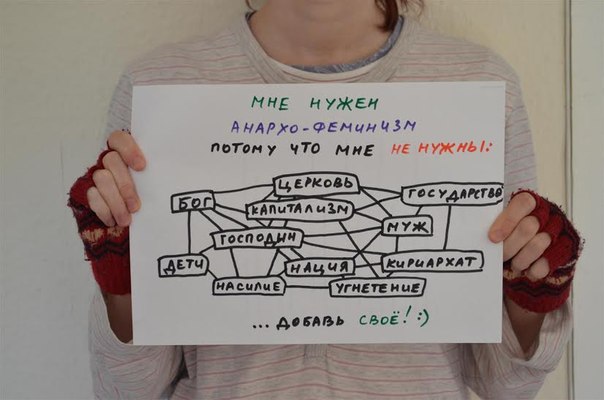 МНЕ НУЖЕН
АНАРХО-ФЕМИНИЗМ
ПОТОМУ ЧТО МНЕ НЕ НУЖНЫ:
ЦЕРКОВЬ
БОГ
ГОСУДАРСТВО
КАПИТАЛИЗМ
МУЖ
ГОСПОДИН
ДЕТИ
НАЦИЯ
КИРИАРХАТ
НАСИЛИЕ
УГНЕТЕНИЕ
...ДОБАВЬ СВОЁ! :)